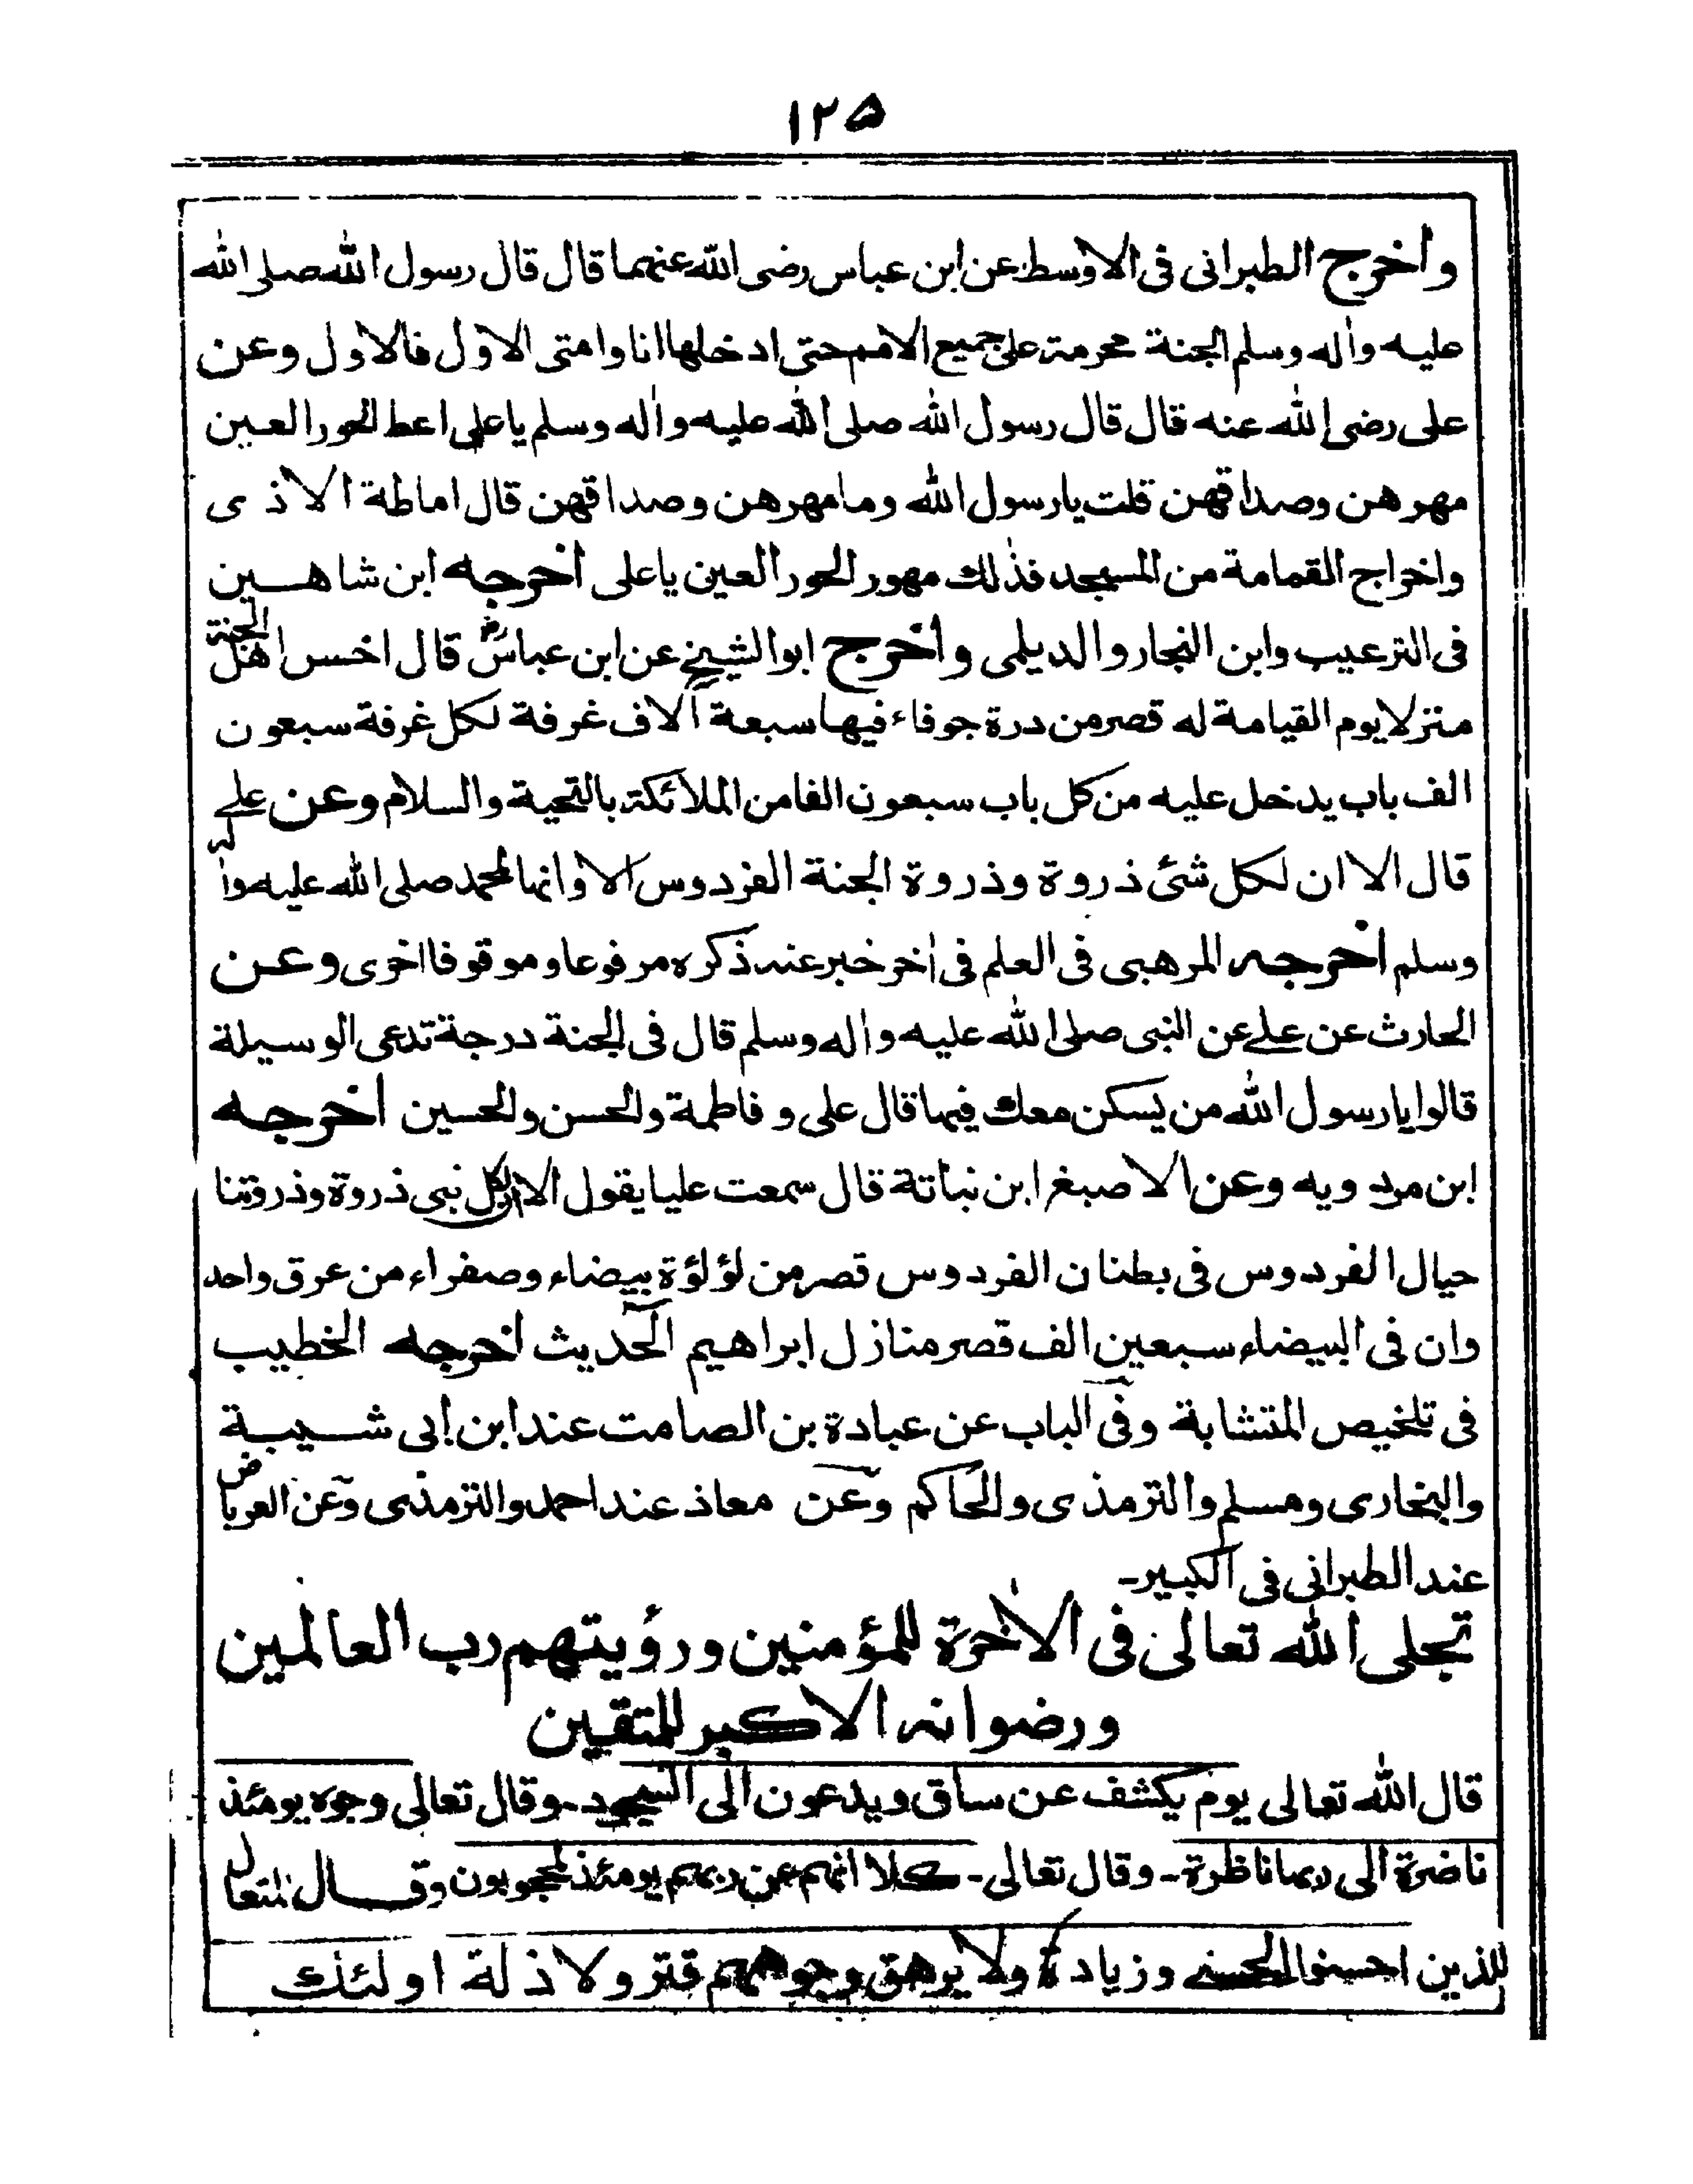 ١٢٥
واخرج الطبرانى فى الاوسط عن ابن عباس رضى الله عنهما قال قال رسول الله صلى الله
عليه واٰله وسلم الجنة محرمة على جميع الامم حتى ادخلها انا وامتى الاول فالاول وعن
على رضى الله عنه قال قال رسول الله صلى الله عليه واٰله وسلم ياعلى اعط الحور العين
مهرهن وصداقهن قلت يا رسول الله وما مهرهن وصداقهن قال اماطة الاذى
واخراج القمامة من المسجد فذلك مهور الحور العين ياعلى اخرجه ابن شاهين
فى الترغيب وابن النجار والديلمى واخرج ابو الشيخ عن ابن عباس رض قال اخس اهل الجنة
منزلا يوم القيامة له قصر من درة جوفاء فيها سبعة آلاف غرفة لكل غرفة سبعون
الف باب يدخل عليه من كل باب سبعون الفا من الملائكة بالتحية والسلام وعن على
قال الا ان لكل شئ ذروة وذروة الجنة الفردوس الا وانها لمحمد صلى الله عليه واٰله
وسلم اخرجه المرهبى فى العلم فى اٰخر خبر عنه ذكره مرفوعا وموقوفا اخرى وعن
الحارث عن على عن النبى صلى الله عليه واٰله وسلم قال فى الجنة درجة تدعى الوسيلة
قالوا يا رسول الله من يسكن معك فيها قال على و فاطمة والحسن والحسين اخرجه
ابن مردويه وعن الاصبغ ابن نباتة قال سمعت عليا يقول الا ان لكل نبى ذروة وذروتنا
حيال الفردوس فى بطنان الفردوس قصر من لؤلؤة بيضاء وصفراء من عرق واحد
وان فى البيضاء سبعين الف قصر منازل ابراهيم الحديث اخرجه الخطيب
فى تلخيص المتشابة وفى الباب عن عبادة بن الصامت عند ابن ابى شيبة
والبخارى ومسلم والترمذى والحاكم وعن معاذ عند احمد والترمذى وعن العرباض
عند الطبرانى فى الكبير-
تجلى الله تعالى فى الاٰخرة للمؤمنين ورؤيتهم رب العالمين
ورضوانه الاكبر للمتقين
قال الله تعالى يوم يكشف عن ساق ويدعون الى السجود- وقال تعالى وجوه يومئذ
ناضرة الى ربها ناظرة- وقال تعالى- كلا انهم عن ربهم يومئذ لمحجوبون وقال
للذين احسنوا الحسنى وزيادة ولا يرهق وجوههم قتر ولا ذلة اولئك